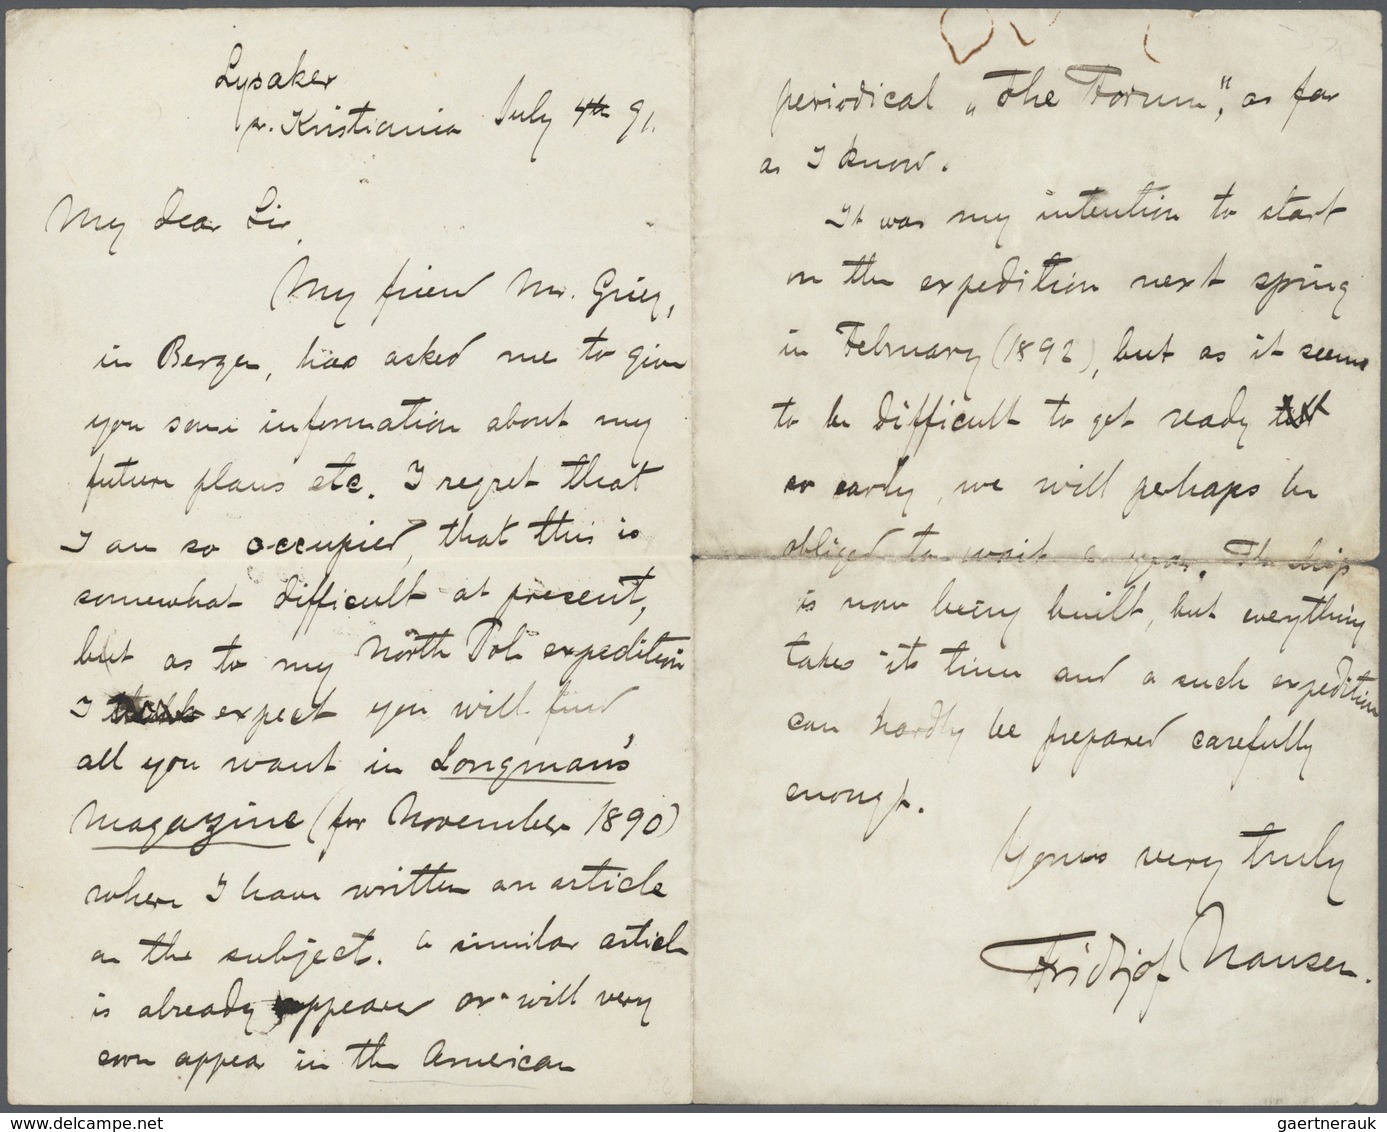 Lysaker
pr. Kristiania July 4th 91.
My dear Sir,
My friend Mr. Grieg,
in Bergen, has asked me to give
you some information about my
future plans etc. I regret that
I am so occupied, that this is
somewhat difficult at present,
but as to my North Pole expedition
I expect you will find
all you want in Longman's
Magazine (for November 1890)
where I have written an article
on the subject. a similar article
is already appeared or will very
soon appear in the American
periodical „The Forum", as far
as I know.
It was my intention to start
on the expedition next spring
in February (1892), but as it seems
to be difficult to get ready
so early, we will perhaps be
obliged to wait a year. The ship
is now being built, but everything
takes its time and a such expedition
can hardly be prepared carefully
enough.
Yours very truly
Fridtjof Nansen.
gaertnerauk
gaertnerauk.com